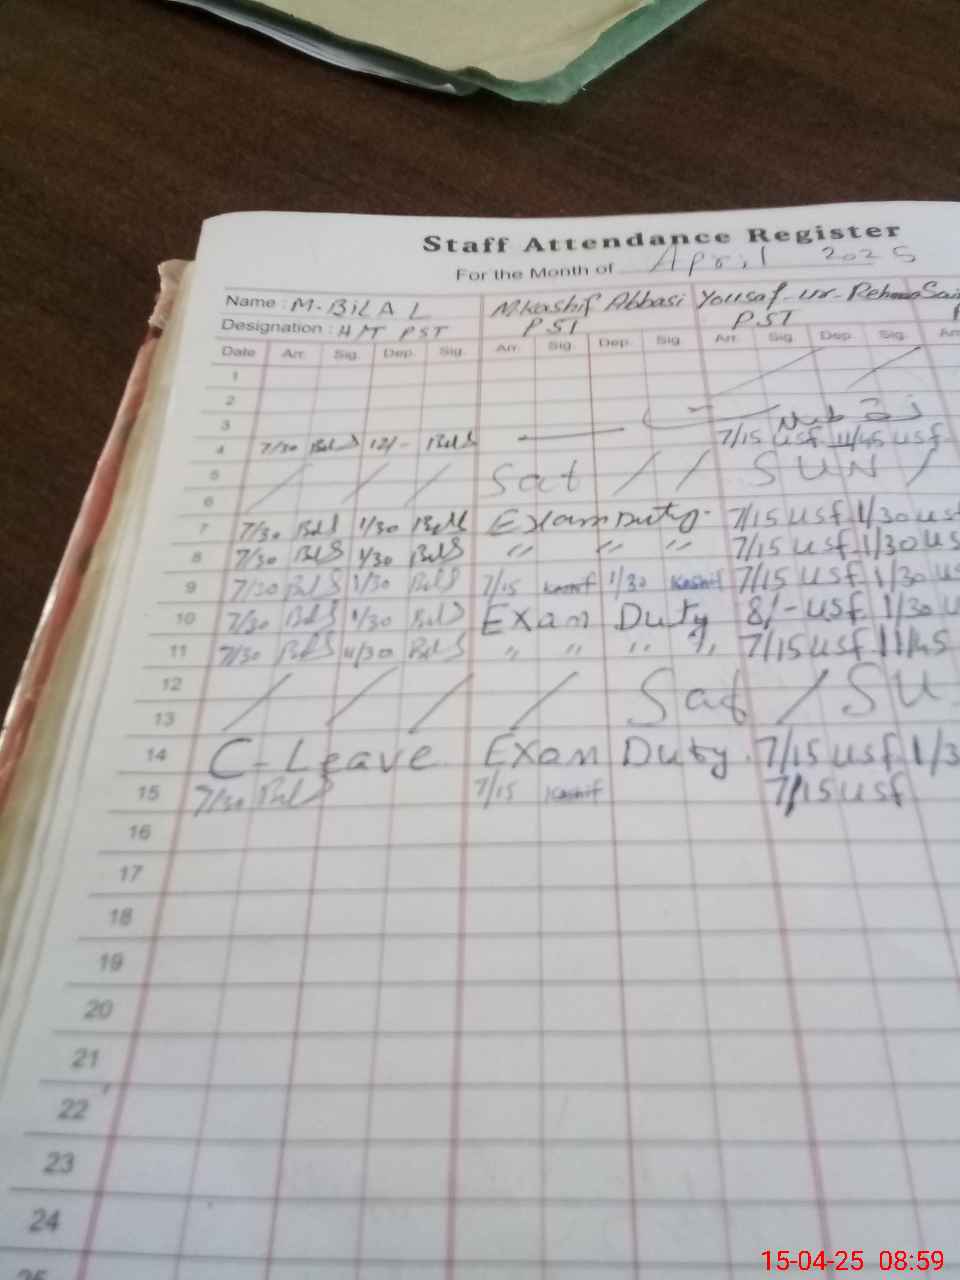 Staff Attendance Register
For the Month of April 2025
Name : M-BILAL M.kashif Abbasi Yousaf-ur-Rehman Sai
Designation : H/T PST PST PST
Date Arr. Sig. Dep. Sig. Arr. Sig. Dep. Sig. Arr. Sig. Dep. Sig. Arr
1
2
3
4 7/30 BelS 12/- BelS 7/15 usf 11/45 usf
5 Sat / / SUN /
6
7 7/30 BelS 1/30 BelS Exam Duty. 7/15 usf 1/30 us
8 7/30 BelS 1/30 BelS " " " 7/15 usf 1/30 us
9 7/30 BelS 1/30 BelS 7/15 Kashif 1/30 Kashif 7/15 usf 1/30 u
10 7/30 BelS 1/30 BelS Exam Duty 8/- usf 1/30 u
11 7/30 BelS 11/30 BelS " " " " 7/15 usf 11/45
12 / / / / Sat / SU
13
14 C-Leave Exam Duty. 7/15 usf 1/3
15 7/30 BelS 7/15 Kashif 7/15 usf
16
17
18
19
20
21
22
23
24
25
15-04-25 08:59